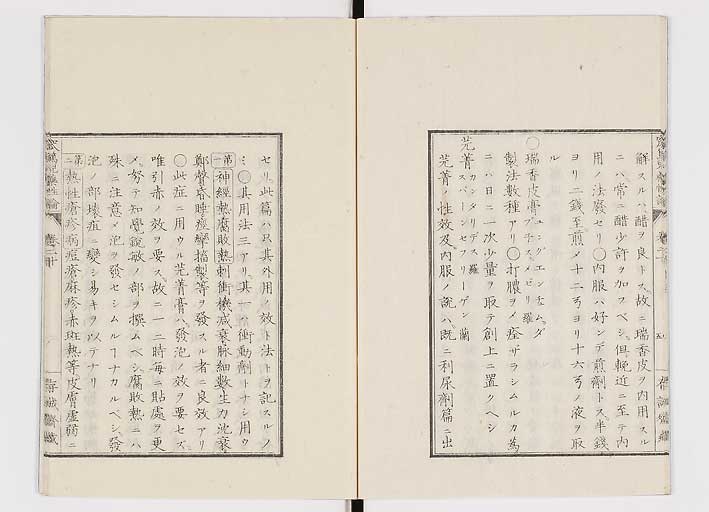 解スルハ醋ヲ良トス故ニ瑞香皮ヲ内用スル
ニハ常ニ醋少許ヲ加フベシ但輓近ニ至テ内
用ノ法廢セリ〇内服ハ好ンデ煎劑トス半錢
ヨリ二錢至煎メ十二弓ヨリ十六弓ノ液ヲ取
ル
〇瑞香皮膏
製法數種アリ〇打膿ヲメ痊ザラシムルカ爲
ニハ日ニ一次少量ヲ取テ創上ニ置クヘシ
芫菁 カンタリデス羅
スパーンセフリーゲン蘭
芫菁ノ性效及内服ノ説ハ既ニ利尿劑篇ニ出
セリ此篇ハ只其外用ノ效ト法トヲ記スルノ
ミ〇其用法三アリ其一ハ衝動劑トナシ用ウ
第一神經熱腐敗熱刺衝機減衰脉細數生力沈衰
鄭聲昏睡痙攣搐掣等ヲ發スル者ニ良效アリ
〇此症ニ用ウル芫菁膏ハ發泡ノ效ヲ要セズ
唯引赤ノ效ヲ要ス故ニ一二時毎ニ貼處ヲ更
メ努テ知覺鋭敏ノ部ヲ撰ムベシ腐敗熱ニハ
殊ニ注意メ泡ヲ發セシムルヿナカルベシ發
泡ノ部壊疽ニ變シ易キヲ以テナリ
第二熱性瘡疹痘瘡麻疹赤斑熱等皮膚虚弱ニ